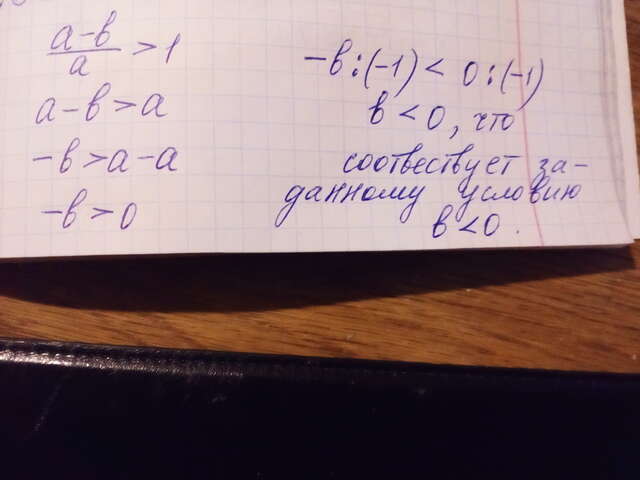 a-b/a > 1
a-b > a
-b > a-a
-b > 0
-b:(-1) < 0:(-1)
b < 0, что
соотвествует за-
данному условию
b < 0.